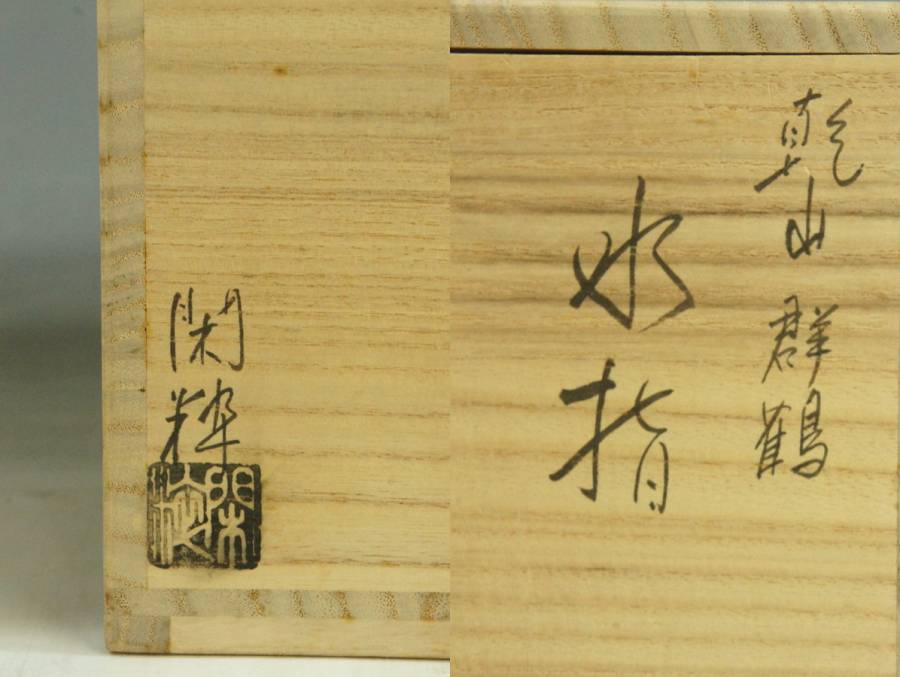 乾山 群鶴
水指
閑粋